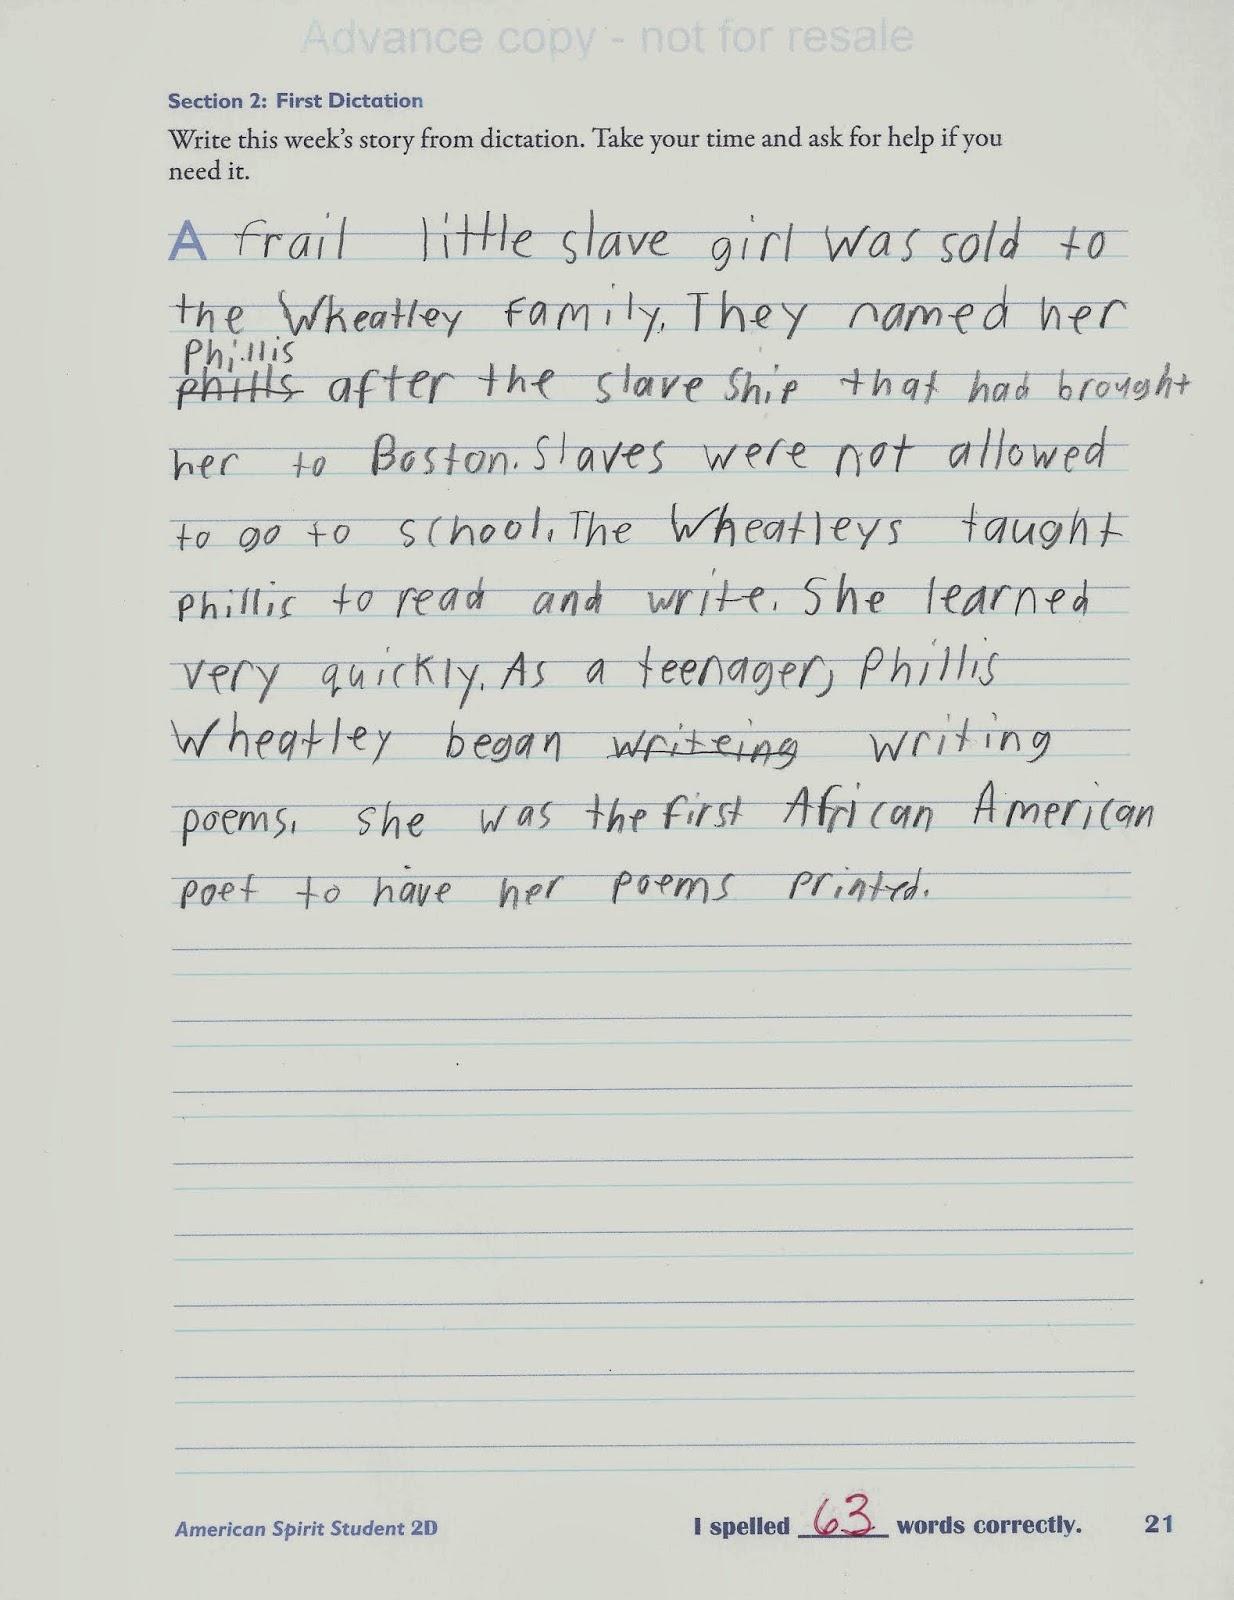 Advance copy - not for resale
Section 2: First Dictation
Write this week's story from dictation. Take your time and ask for help if you
need it.
A frail little slave girl was sold to
the Wheatley family. They named her
Phillis
phills after the slave ship that had brought
her to Boston. Slaves were not allowed
to go to school. The Wheatleys taught
Phillis to read and write. She learned
very quickly. As a teenager, Phillis
Wheatley began writeing writing
poems. she was the first African American
poet to have her poems printed.
American Spirit Student 2D I spelled 63 words correctly. 21